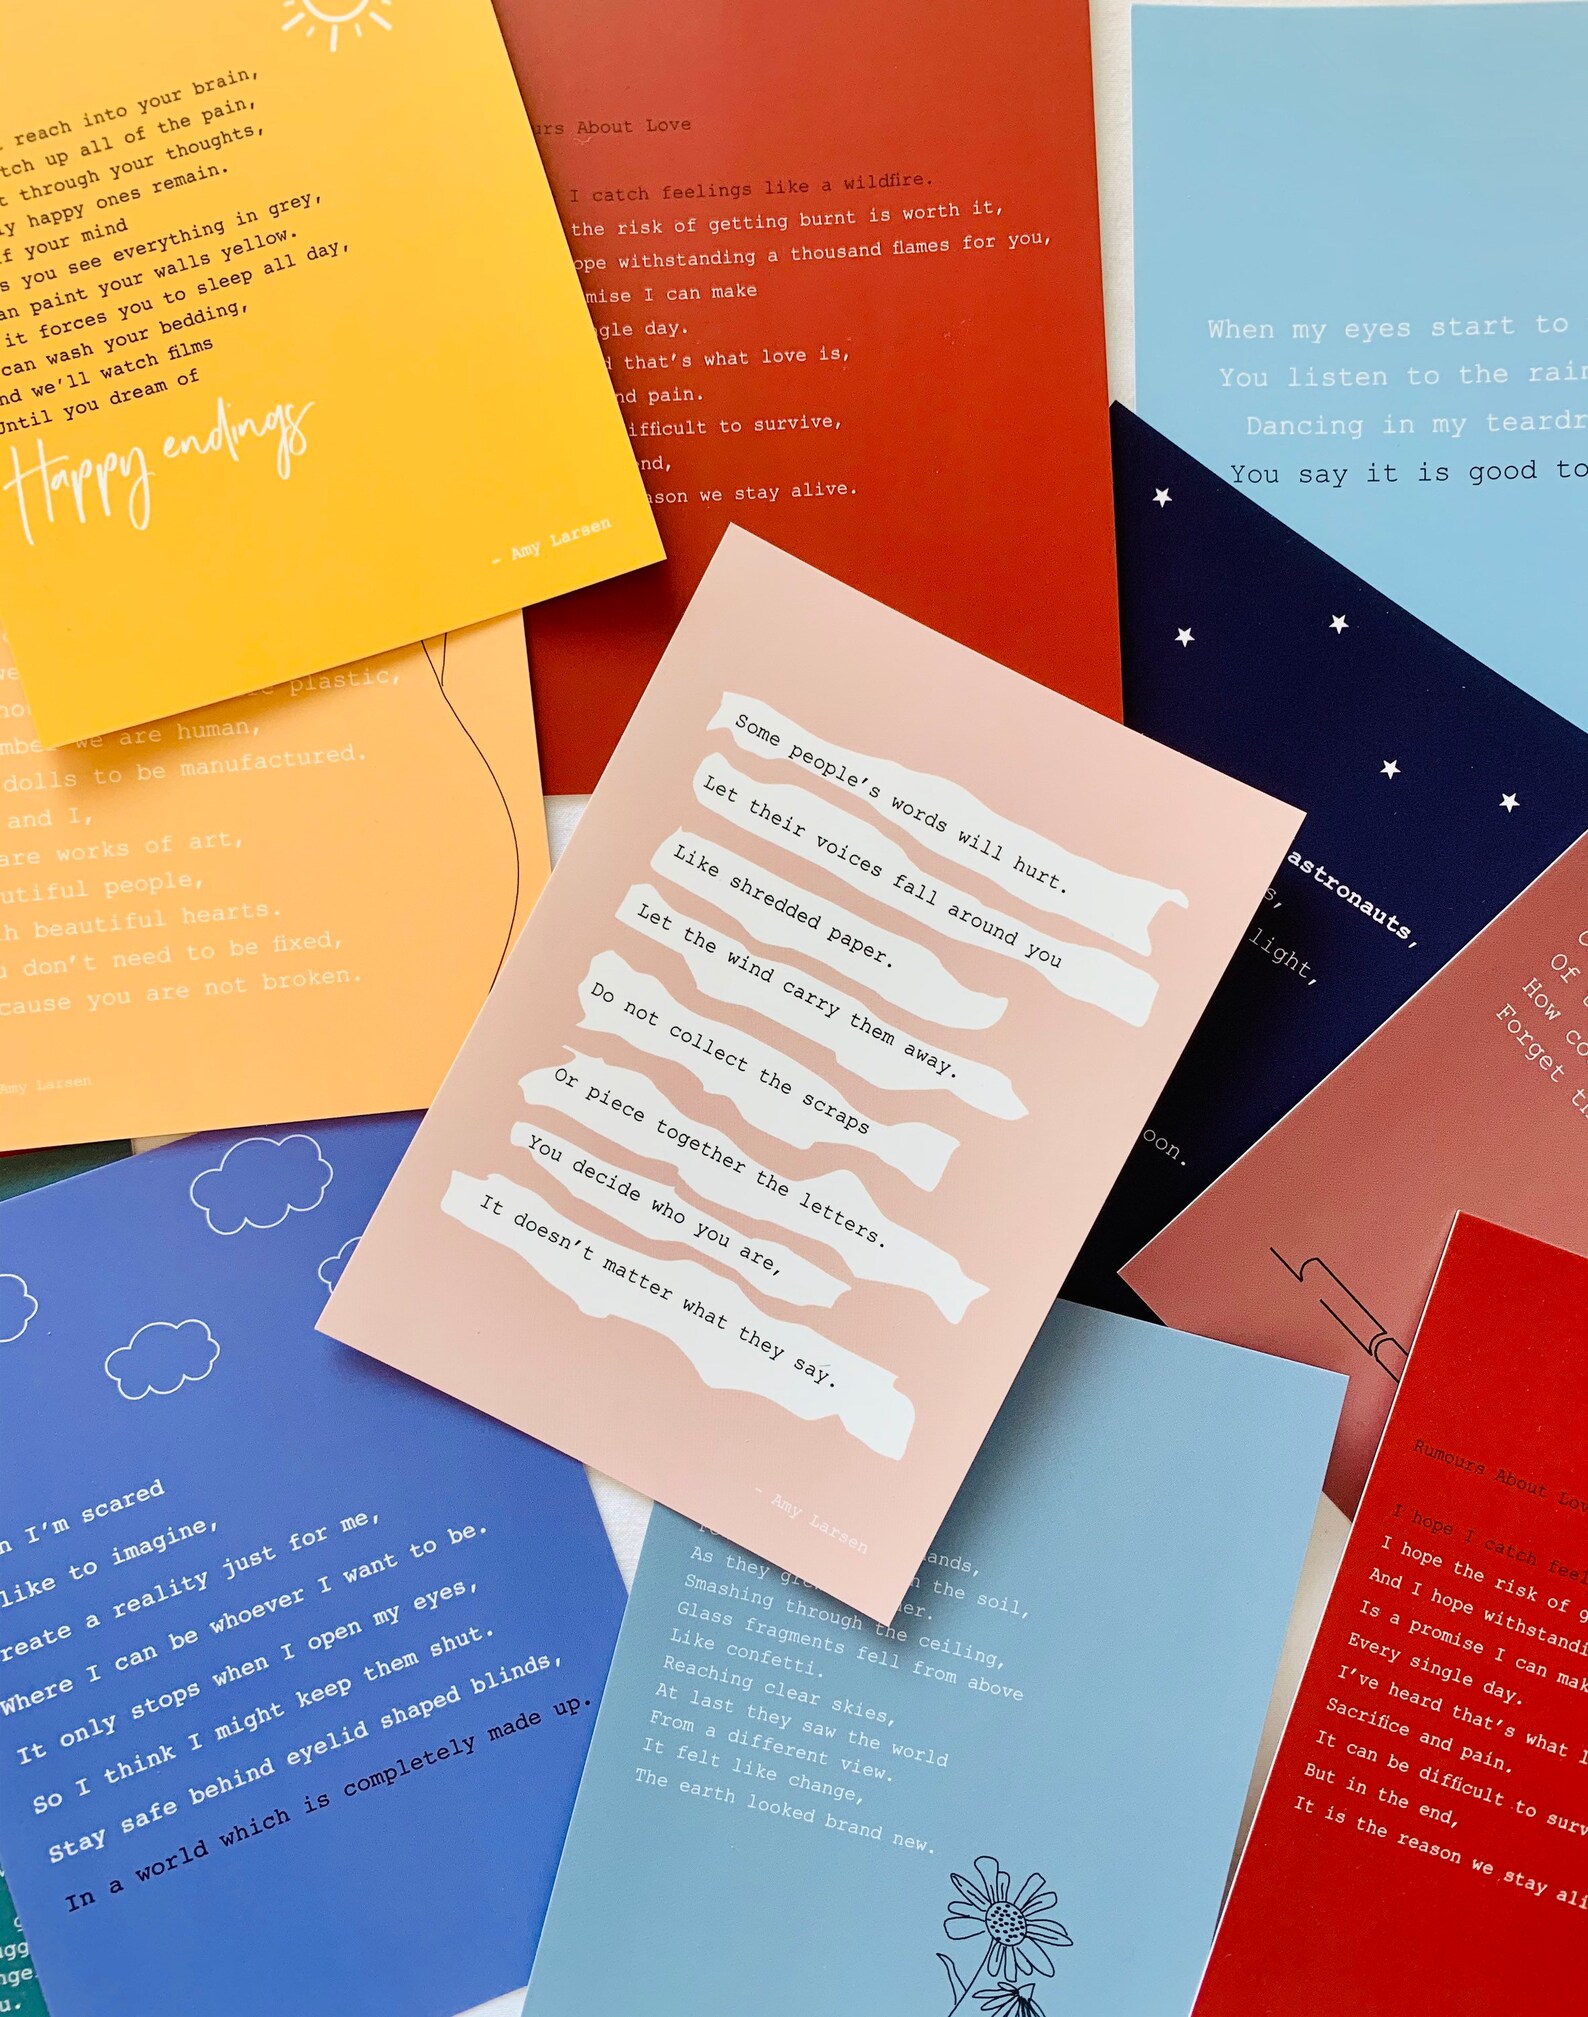 reach into your brain,
up all of the pain,
through your thoughts,
happy ones remain.
your mind
you see everything in grey,
paint your walls yellow.
it forces you to sleep all day,
can wash your bedding,
we'll watch films
Until you dream of
Happy endings
- Amy Larsen
About Love
I catch feelings like a wildfire.
the risk of getting burnt is worth it,
withstanding a thousand flames for you,
I can make
day.
that's what love is,
pain.
to survive,
we stay alive.
When my eyes start to
You listen to the rain
Dancing in my
You say it is good to
plastic,
we are human,
dolls to be manufactured.
and I,
are works of art,
people,
beautiful hearts.
don't need to be fixed,
you are not broken.
Amy Larsen
Some people's words will hurt.
Let their voices fall around you
Like shredded paper.
Let the wind carry them away.
Do not collect the scraps
Or piece together the letters.
You decide who you are,
It doesn't matter what they say.
- Amy Larsen
astronauts,
light,
Of
How
Forget
I'm scared
like to imagine,
a reality just for me,
Where I can be whoever I want to be.
It only stops when I open my eyes,
So I think I might keep them shut.
Stay safe behind eyelid shaped blinds,
In a world which is completely made up.
As they the soil,
Smashing through the ceiling,
Glass fragments fell from above
Like confetti.
Reaching clear skies,
At last they saw the world
From a different view.
It felt like change,
The earth looked brand new.
Rumours About
I hope I catch
I hope the risk of
And I hope
Is a promise I can
Every single day.
I've heard that's what
Sacrifice and pain.
It can be difficult to
But in the end,
It is the reason we stay